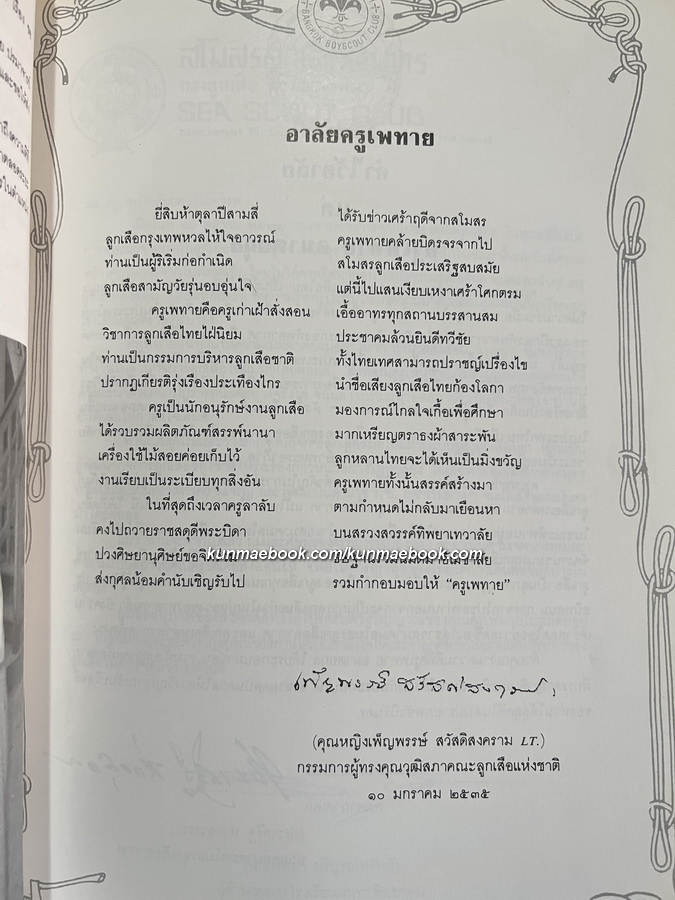 BANGKOK BOYSCOUT CLUB
อาลัยครูเพทาย
ยี่สิบห้าตุลาปีสามสี่ ได้รับข่าวเศร้าฤดีจากสโมสร
ลูกเสือกรุงเทพหวลไห้ใจอาวรณ์ ครูเพทายคล้ายบิดรจรจากไป
ท่านเป็นผู้ริเริ่มก่อกำเนิด สโมสรลูกเสือประเสริฐสบสมัย
ลูกเสือสามัญวัยรุ่นอบอุ่นใจ แต่นี้ไปแสนเงียบเหงาเศร้าโศกตรม
ครูเพทายคือครูเก่าเฝ้าสั่งสอน เอื้ออาทรทุกสถานบรรสานสม
วิชาการลูกเสือไทยใฝ่นิยม ประชาคมล้วนยินดีทวีชัย
ท่านเป็นกรรมการบริหารลูกเสือชาติ ทั้งไทยเทศสามารถปราชญ์เปรื่องไข
ปรากฏเกียรติรุ่งเรืองประเทืองไกร นำชื่อเสียงลูกเสือไทยก้องโลกา
ครูเป็นนักอนุรักษ์งานลูกเสือ มองการณ์ไกลใจเกื้อเพื่อศึกษา
ได้รวบรวมผลิตภัณฑ์สรรพ์นานา มากเหรียญตราธงผ้าสาระพัน
เครื่องใช้ไม้สอยค่อยเก็บไว้ ลูกหลานไทยจะได้เห็นเป็นมิ่งขวัญ
งานเรียบเป็นระเบียบทุกสิ่งอัน ครูเพทายทั้งนั้นสรรค์สร้างมา
ในที่สุดถึงเวลาครูลาลับ ตามกำหนดไม่กลับมาเยือนหา
คงไปถวายราชสดุดีพระบิดา บนสรวงสวรรค์ทิพยาเทวาลัย
ปวงศิษยานุศิษย์
kunmaebook.com/kunmaebook.com
ส่งกุศลน้อมคำนับเชิญรับไป รวมกำกอบมอบให้ “ครูเพทาย”
(คุณหญิงเพ็ญพรรษ์ สวัสดิสงคราม LT.)
กรรมการผู้ทรงคุณวุฒิสภาคณะลูกเสือแห่งชาติ
๑๐ มกราคม ๒๕๓๕